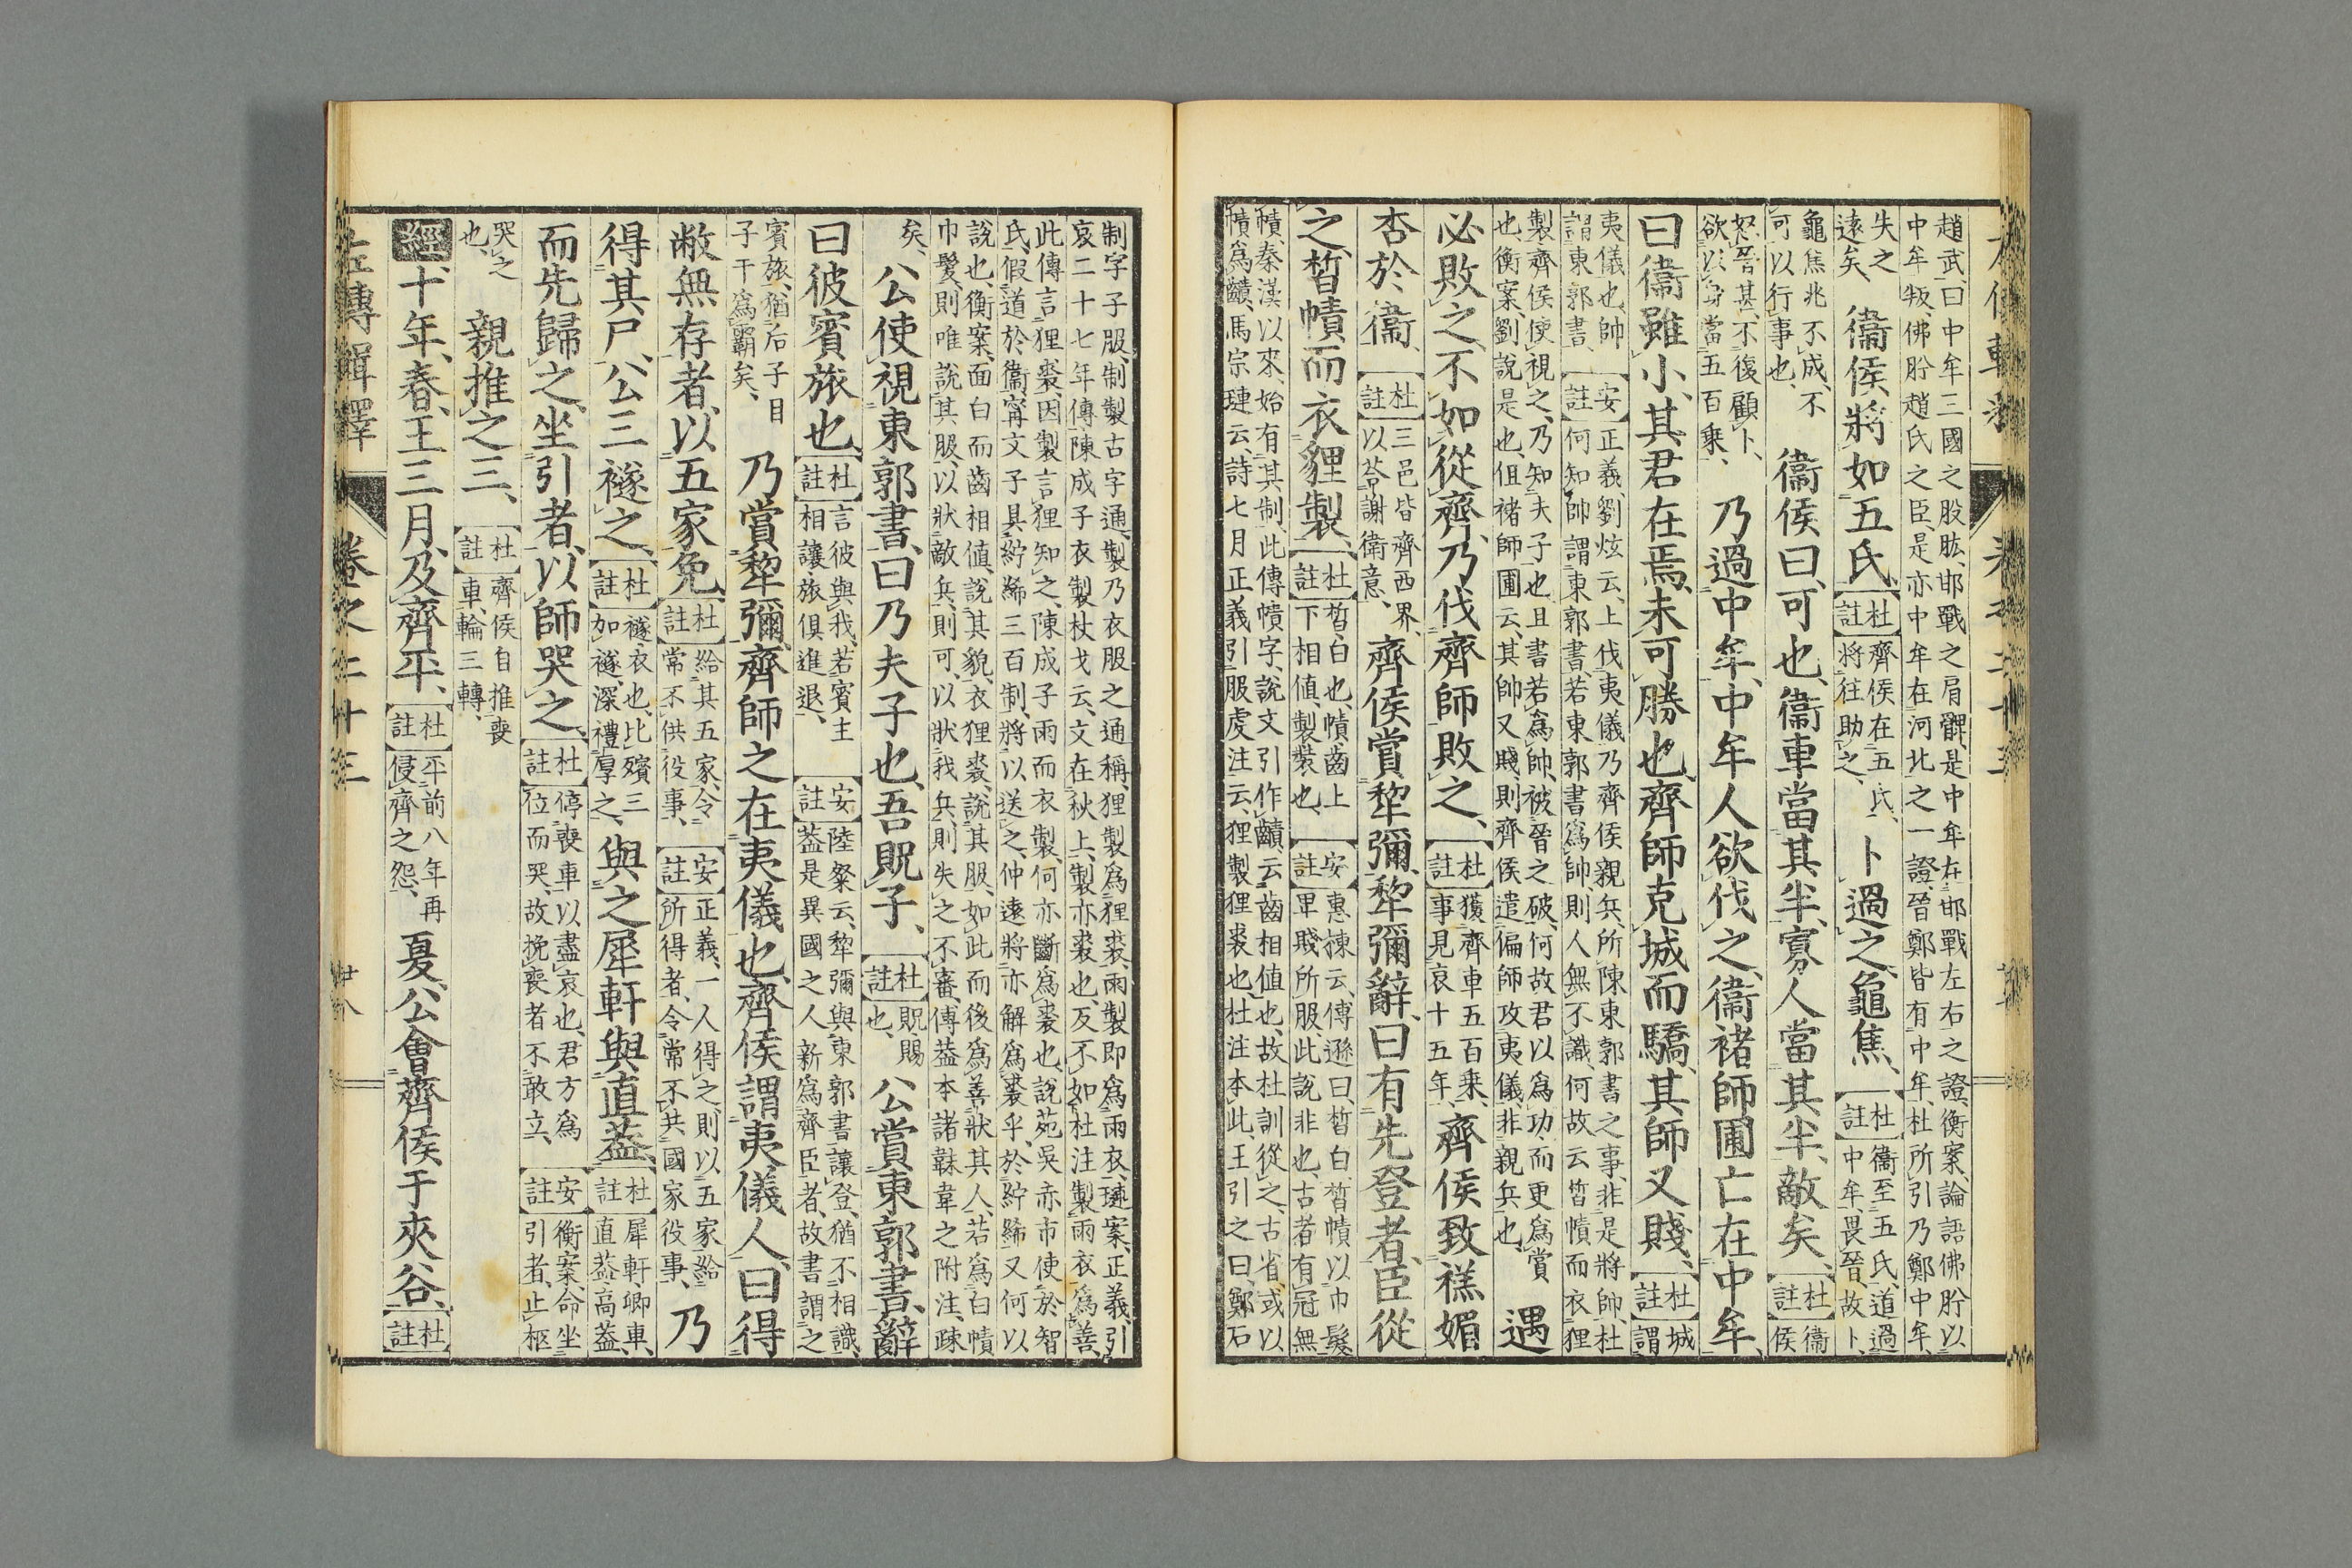 趙武、曰中牟三國之股肱、邯戰之肩髀、是中牟在邯戰左右之證、衡案、論語佛肸以
中牟叛、佛肸趙氏之臣、是亦中牟在河北之一證、晉鄭皆有中牟、杜所引乃鄭中牟、
失之
遠矣、
衞侯將如五氏、
杜註
齊侯在五氏、
將往助之、
卜過之、龜焦、
杜註
衞至五氏、道過
中牟、畏晉、故卜、
龜焦兆不成、不
可以行事也、
衞侯曰、可也、衞車當其半、寡人當其半、敵矣、
杜註
衞
侯
怒晉甚、不復顧卜、
欲以身當五百乘、
乃過中牟、中牟人欲伐之、衞褚師圃亡在中牟、
曰衞雖小、其君在焉、未可勝也、齊師克城而驕、其師又賤、
杜註
城
謂
夷儀也、帥
謂東郭書、
安註
正義、劉炫云、上伐夷儀、乃齊侯親兵、所陳東郭書之事、非是將帥、杜
何知帥謂東郭書、若東郭書爲帥、則人無不識、何故云晳幘而衣狸
製、齊侯使視之、乃知夫子也、且書若爲帥、被晉之破、何故君以爲功、而更爲賞
也、衡案、劉說是也、但褚師圃云、其帥又賤、則齊侯遣偏師攻夷儀、非親兵也、
遇
必敗之、不如從齊、乃伐齊師、敗之、
杜註
獲齊車五百乘、
事見哀十五年、
齊侯致禚媚
杏於衞、
杜註
三邑皆齊西界、
以荅謝衛意、
齊侯賞犂彌、犂彌辭曰、有先登者、臣從
之、晳幘而衣貍製、
杜註
晳、白也、幘、齒上
下相値、製、裘也、
安註
惠棟云、傳遜曰、晳白、晳幘以巾髮
卑賤所服、此說非也、古者有冠無
幘、秦漢以來、始有其制、此傳幘字、說文引作䶦云、齒相值也、故杜訓從之、古省、或以
幘爲䶦、馬宗璉云、詩七月正義引服虔注云、狸製、狸裘也、杜注本此、王引之曰、鄭石
制字子服、制製古字通、製乃衣服之通稱、狸製爲狸裘、雨製即爲雨衣、璉案、正義、引
哀二十七年傳、陳成子衣製杖戈云、文在秋上、製亦裘也、反不如杜注製雨衣爲善、
此傳言狸裘、因製言狸知之、陳成子雨而衣製、何亦斷爲裘也、說苑吳赤市使於智
氏、假道於衞、甯文子具紵絺三百制、將以送之、仲遠將亦解爲裘乎、於紵絺又何以
說也、衡案、面白而齒相値、說其貌、衣狸裘、說其服、如此而後爲善狀其人、若爲白幘
巾髮、則唯說其服、以狀敵兵、則可、以狀我兵、則失之不審、傅葢本諸韎韋之附注、疎
矣、
公使視東郭書、曰乃夫子也、吾貺子、
杜註
貺、賜
也、
公賞東郭書、辭
曰彼賓旅也、
杜註
言彼與我、若賓主
相讓、旅俱進退、
安註
陸粲云、犂彌與東郭書讓登、猶不相識、
葢是異國之人新爲齊臣者、故書謂之
賓旅、猶后子目
子干爲覊矣、
乃賞犂彌、齊師之在夷儀也、齊侯謂夷儀人、曰得
敝無存者、以五家免、
杜註
給其五家、令
常不供役事、
安註
正義、一人得之、則以五家給
所得者、令常不共國家役事、
乃
得其尸、公三襚之、
杜註
襚、衣也、比殯三
加襚、深禮厚之、
與之犀軒與直葢、
杜註
犀軒、卿車、
直葢高葢、
而先歸之、坐引者、以師哭之、
杜註
停喪車以盡哀也、君方爲
位而哭、故挽喪者不敢立、
安註
衡案、命坐
引者、止柩
哭之
也、
親推之三、
杜註
齊侯自推喪
車、輪三轉、
經十年、春、王三月、及齊平、
杜註
平前八年再
侵齊之怨、
夏、公會齊侯于夾谷、
杜註
左傳輯釋
卷之二十三
廿八